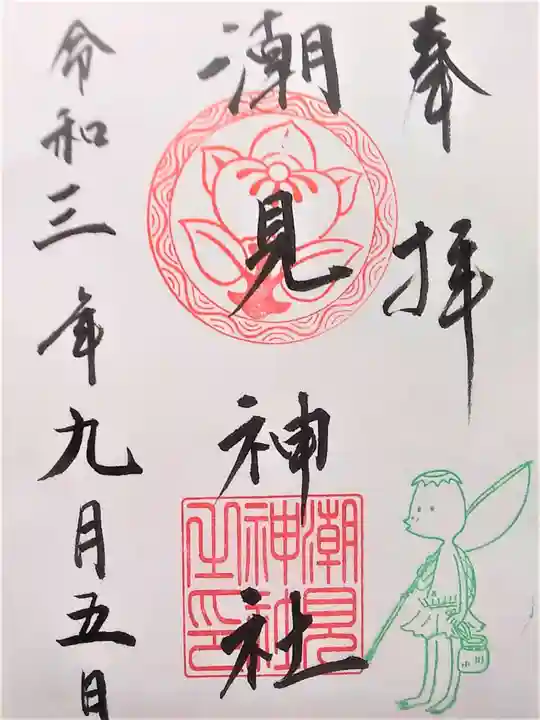 奉拝
潮見神社
潮見神社之印
令和三年九月五日